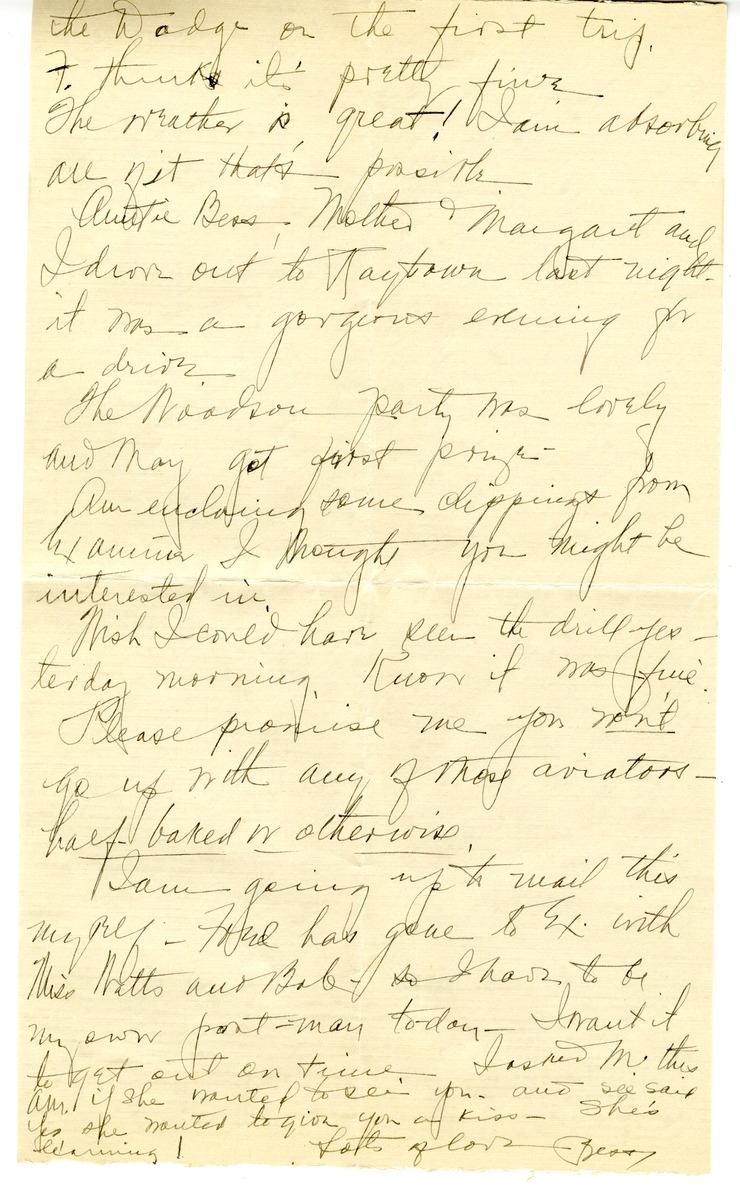 the Dodge on the first trip.
F. thinks it's pretty fine
The weather is great! I am absorbing
all of it that's possible
Auntie Bess, Mother & Margaret and
I drove out to Raytown last night-
it was a gorgeous evening for
a drive
The Woodson party was lovely
and May got first prize-
Am enclosing some clippings from
Examiner I thought you might be
interested in.
Wish I could have seen the drill yes-
terday morning. Know it was fine.
Please promise me you won't
go up with any of those aviators-
half-baked or otherwise.
I am going up to mail this
myself - Fred has gone to Ex. with
Miss Watts and Bob - so I have to be
my own post-man today - I want it
to get out on time - I asked M. this
am. if she wanted to see you - and she said
yes she wanted to give you a kiss - She's
learning! Lots of love Bess